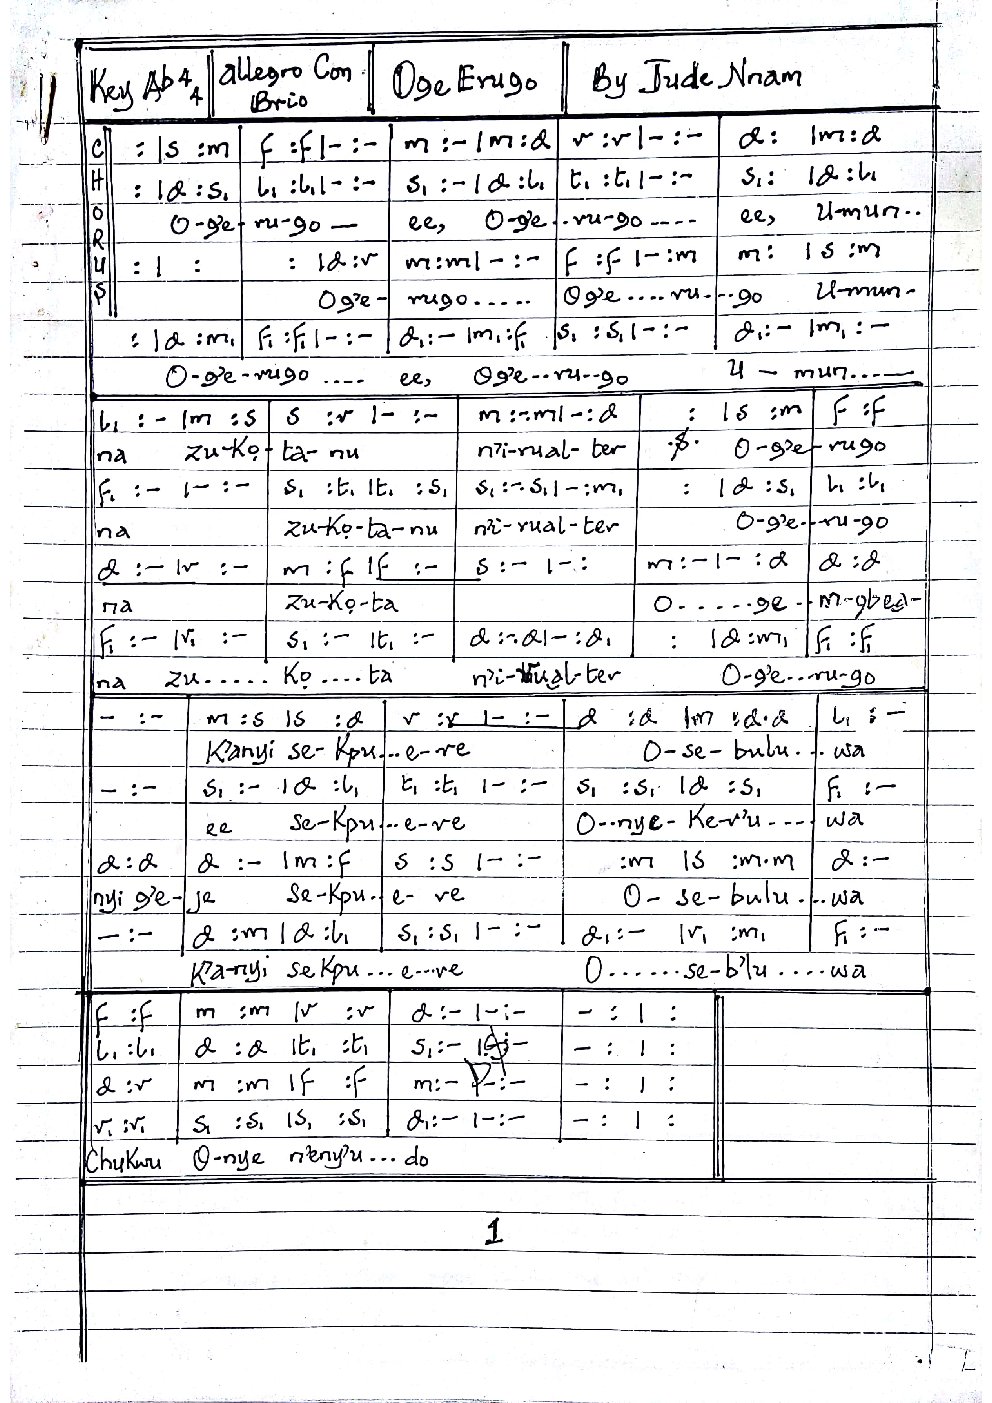 Key Ab 4/4 Allegro Con Brio Oge Erugo By Jude Nnam
CHORUS
: |s :m f :f |- :- m :- |m :d r :r |- :- d : |m :d
: |d :s₁ l₁ :l₁ |- :- s₁ :- |d :l₁ t₁ :t₁ |- :- s₁ : |d :l₁
O-g'e-ru-go — ee, O-g'e..ru-go ---- ee, U-mun..
: | : : |d :r m :m |- :- f :f |- :m m : |s :m
Og'e- rugo..... Og'e....ru...go U-mun-
: |d :m₁ f₁ :f₁ |- :- d₁ :- |m₁ :f₁ s₁ :s₁ |- :- d₁ :- |m₁ :-
O-g'e-rugo .... ee, Og'e..ru-go U - mun.....
l₁ :- |m :s s :r |- :- m :-.m |- :d : |s :m f :f
na zu-Kọ-ta-nu n'i-rual-ter .S. O-g'e-rugo
f₁ :- |- :- s₁ :t₁ |t₁ :s₁ s₁ :-.s₁ |- :m₁ : |d :s₁ l₁ :l₁
na zu-Kọ-ta-nu n'i-rual-ter O-g'e-ru-go
d :- |r :- m :f |f :- s :- |- : m :- |- :d d :d
na zu-Kọ-ta O......ge..m-gbea-
f₁ :- |r₁ :- s₁ :- |t₁ :- d :-.d |- :d₁ : |d :m₁ f₁ :f₁
na zu..... Kọ....ta n'i-rual-ter O-g'e..ru-go
- :- m :s |s :d r :r |- :- d :d |m :d.d l₁ :-
K'anyi se-Kpu..e-ve O-se-bulu...wa
- :- s₁ :- |d :l₁ t₁ :t₁ |- :- s₁ :s₁ |d :s₁ f₁ :-
ee se-Kpu..e-ve O-nye-Ke-r'u----wa
d :d d :- |m :f s :s |- :- :m |s :m.m d :-
nyi g'e-je se-Kpu..e-ve O-se-bulu...wa
- :- d :m |d :l₁ s₁ :s₁ |- :- d₁ :- |r₁ :m₁ f₁ :-
K'a-nyi seKpu...e..ve O......se-b'lu....wa
f :f m :m |r :r d :- |- :- - : | :
l₁ :l₁ d :d |t₁ :t₁ s₁ :- |- :- - : | :
d :r m :m |f :f m :- |- :- - : | :
r₁ :r₁ s₁ :s₁ |s₁ :s₁ d₁ :- |- :- - : | :
Chukwu O-nye n'eny'u...do
1